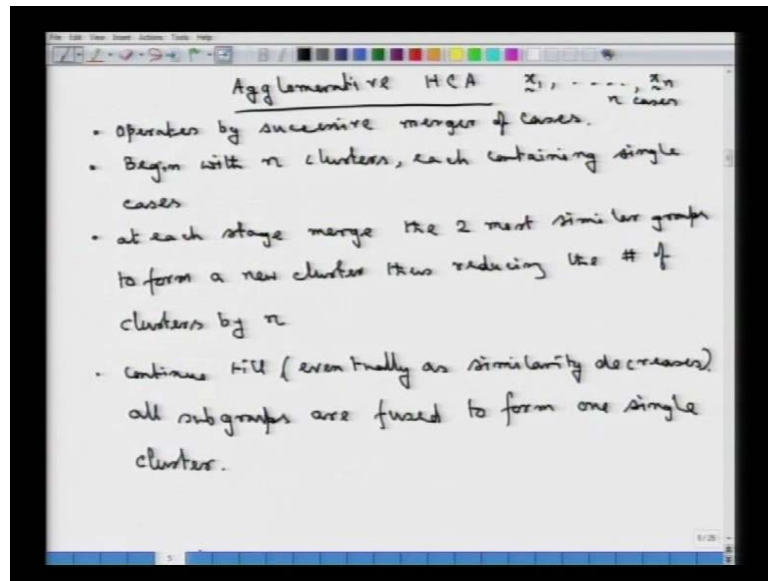 File Edit View Insert Actions Tools Help
Agglomerative HCA x1, - - - - -, xn
n cases
• operates by successive merger of cases.
• Begin with n clusters, each containing single
cases
• at each stage merge the 2 most similar groups
to form a new cluster thus reducing the # of
clusters by n
• continue till (eventually as similarity decreases)
all subgroups are fused to form one single
cluster.
5